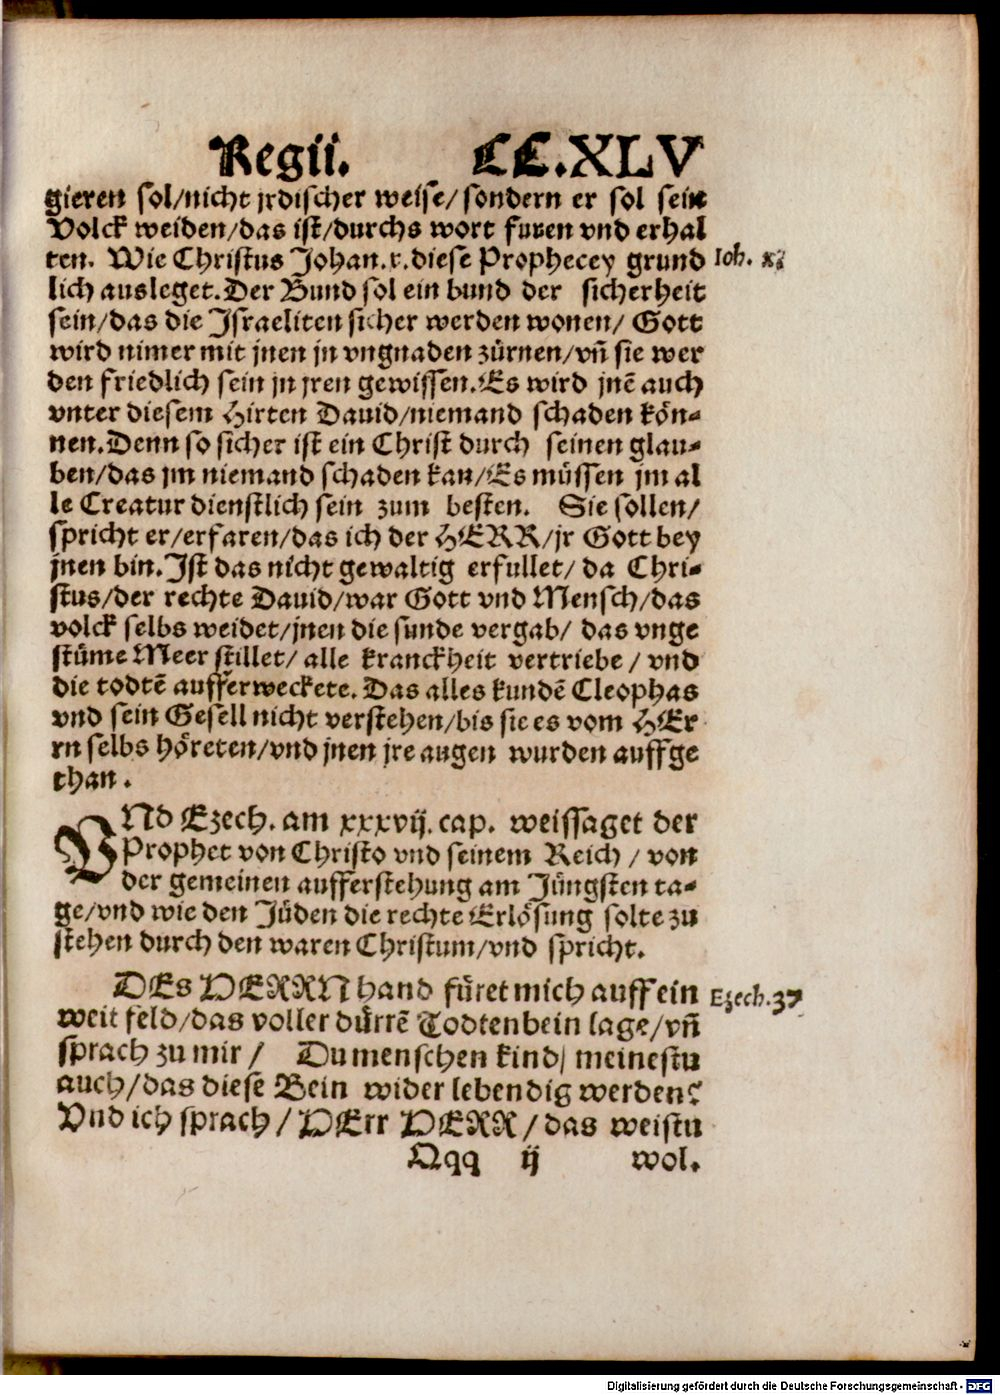 Regii. CC.XLV
gieren sol/nicht jrdischer weise/sondern er sol sein
Volck weiden/das ist/durchs wort furen vnd erhal
ten. Wie Christus Johan.x.diese Prophecey grund
Ioh. x
lich ausleget.Der Bund sol ein bund der sicherheit
sein/das die Israeliten sicher werden wonen/ Gott
wird nimer mit jnen jn vngnaden zürnen/vñ sie wer
den friedlich sein jn jren gewissen.Es wird jnē auch
vnter diesem Hirten Dauid/niemand schaden kön-
nen.Denn so sicher ist ein Christ durch seinen glau-
ben/das jm niemand schaden kan/Es müssen jm al
le Creatur dienstlich sein zum besten. Sie sollen/
spricht er/erfaren/das ich der HERR/jr Gott bey
jnen bin.Ist das nicht gewaltig erfullet/ da Chri-
stus/der rechte Dauid/war Gott vnd Mensch/das
volck selbs weidet/jnen die sunde vergab/ das vnge
stüme Meer stillet/ alle kranckheit vertriebe / vnd
die todtē aufferweckete. Das alles kundē Cleophas
vnd sein Gesell nicht verstehen/bis sie es vom HEr
rn selbs höreten/vnd jnen jre augen wurden auffge
than.
VNd Ezech. am xxxvij. cap. weissaget der
Prophet von Christo vnd seinem Reich / von
der gemeinen aufferstehung am Jüngsten ta-
ge/vnd wie den Jüden die rechte Erlösung solte zu
stehen durch den waren Christum/vnd spricht.
DEs HERRN hand füret mich auff ein
Ezech.37
weit feld/das voller dürrē Todtenbein lage/vñ
sprach zu mir / Du menschen kind/ meinestu
auch/das diese Bein wider lebendig werden?
Vnd ich sprach / HErr HERR / das weistu
Qqq ij wol.
Digitalisierung gefördert durch die Deutsche Forschungsgemeinschaft - DFG